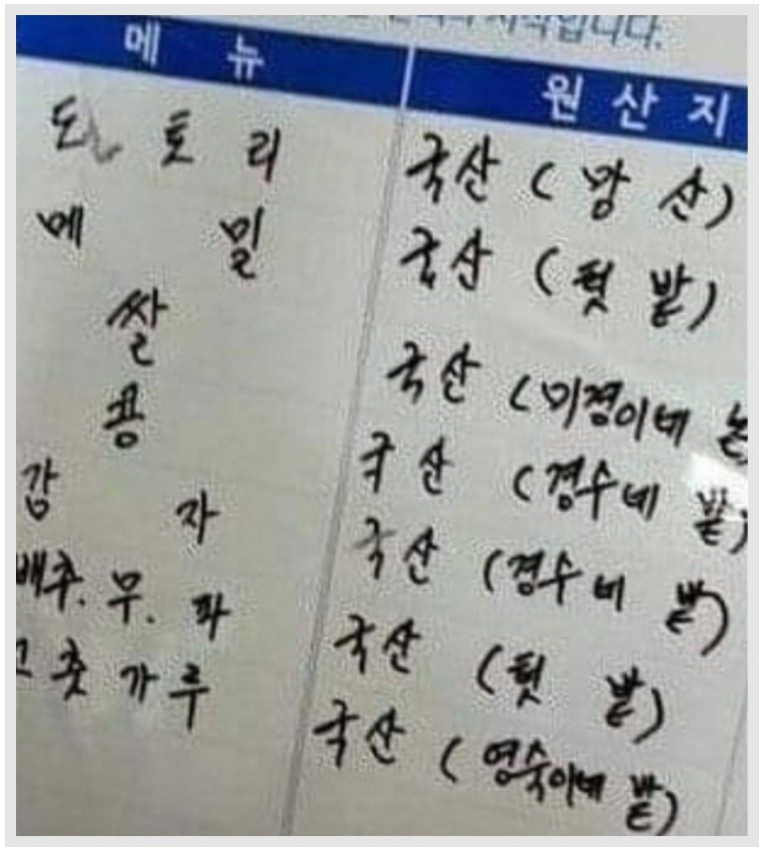 시작입니다.
메 뉴 원 산 지
도 토 리 국산 (망 산)
메 밀 국산 (텃 밭)
쌀 국산 (미경이네 논)
콩 국산 (경수네 밭)
감 자 국산 (경수네 밭)
배추. 무. 파 국산 (텃 밭)
고춧가루 국산 (영숙이네 밭)